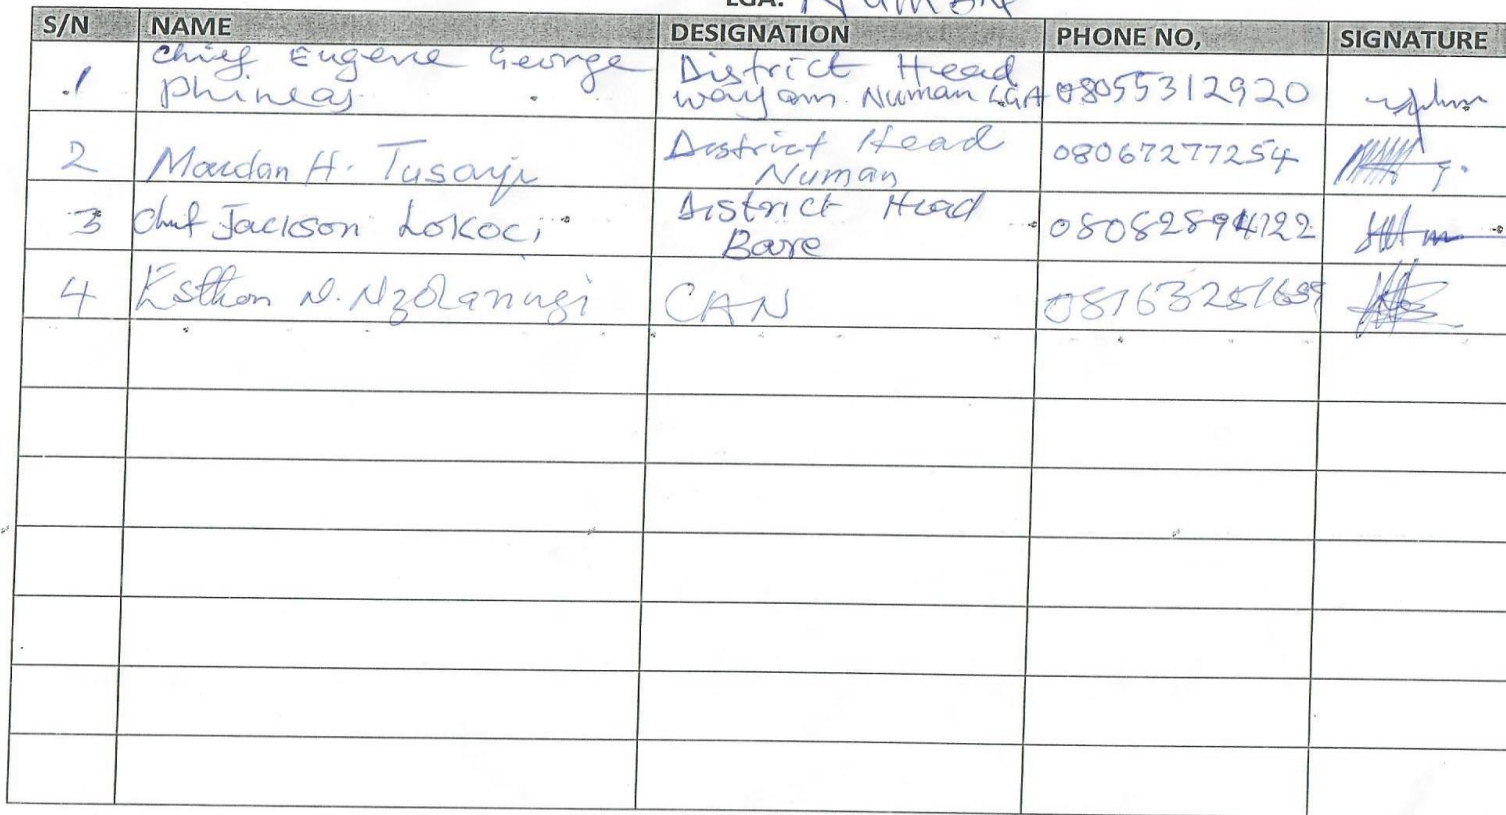 LGA: Numan
S/N NAME DESIGNATION PHONE NO, SIGNATURE
1 Chief Eugene George Phineas District Head Wayam Numan LGA 08055312920
2 Mardan H. Tusayi District Head Numan 08067277254
3 Chief Jackson Lokoci District Head Bare 08082894722
4 N. CAN